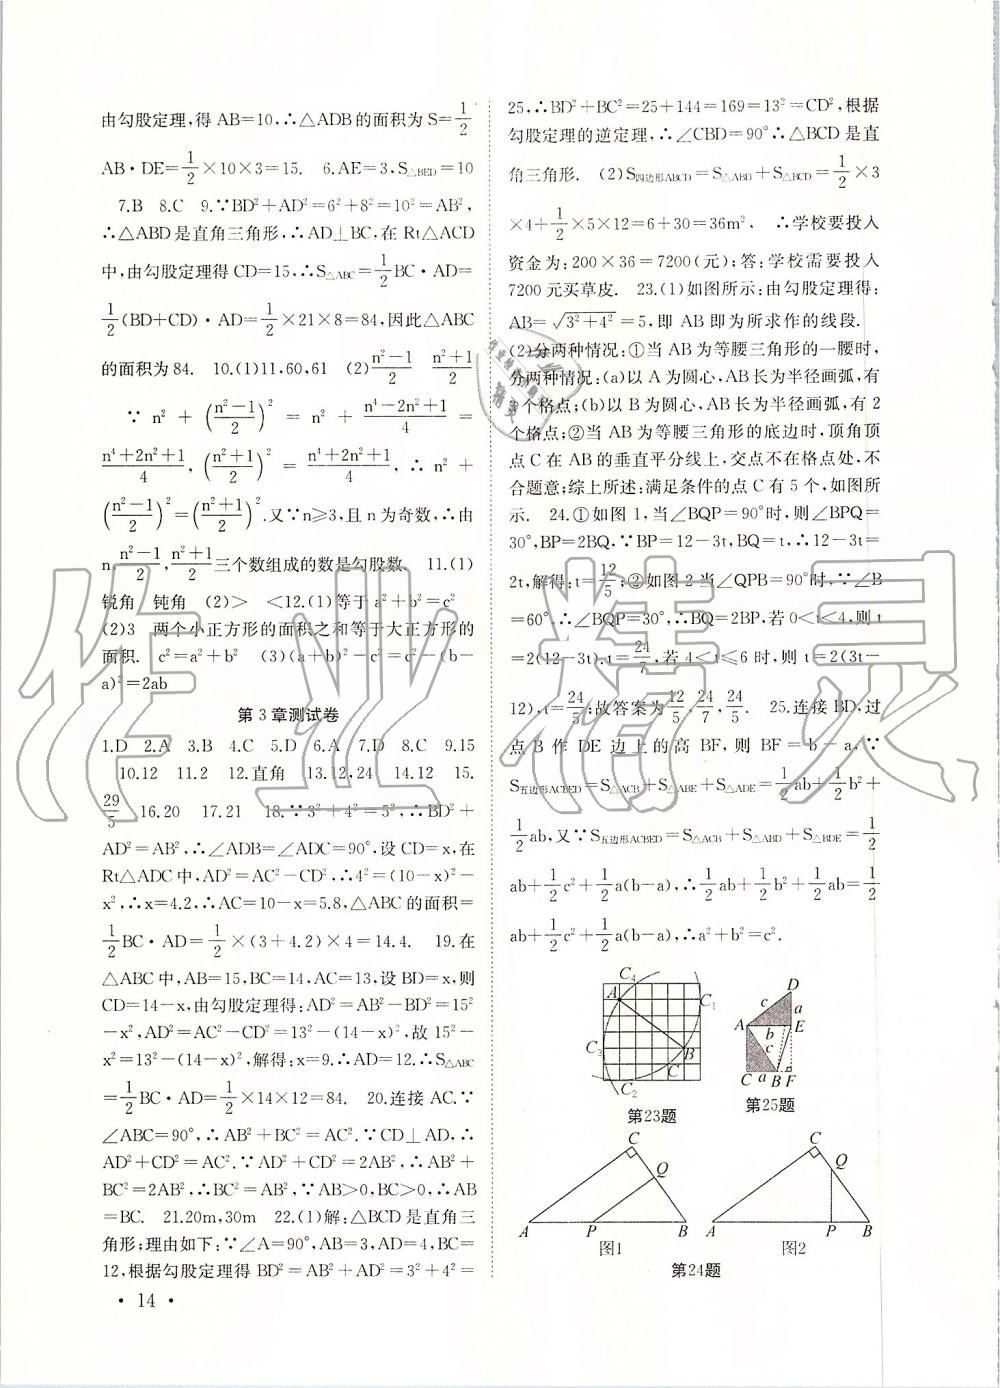 由勾股定理,得 AB=10,∴△ADB的面积为 S=1/2
AB·DE=1/2×10×3=15. 6.AE=3,S△BED=10
7.B 8.C 9.∵BD²+AD²=6²+8²=10²=AB²,
∴△ABD是直角三角形,∴AD⊥BC,在 Rt△ACD
中,由勾股定理得 CD=15,∴S△ABC=1/2BC·AD=
1/2(BD+CD)·AD=1/2×21×8=84,因此△ABC
的面积为 84. 10.(1)11,60,61 (2)(n²-1)/2 (n²+1)/2
∵ n² + ((n²-1)/2)² = n² + (n⁴-2n²+1)/4 =
(n⁴+2n²+1)/4, ((n²+1)/2)² = (n⁴+2n²+1)/4, ∴ n² +
((n²-1)/2)²=((n²+1)/2)².又∵n≥3,且 n 为奇数,∴由
n,(n²-1)/2,(n²+1)/2三个数组成的数是勾股数. 11.(1)
锐角 钝角 (2)> <12.(1)等于 a²+b²=c²
(2)3 两个小正方形的面积之和等于大正方形的
面积. c²=a²+b² (3)(a+b)²-c²=c²-(b-
a)²=2ab
第 3 章测试卷
1.D 2.A 3.B 4.C 5.D 6.A 7.D 8.C 9.15
10.12 11.2 12.直角 13.12,24 14.12 15.
29/5 16.20 17.21 18.∵3²+4²=5²,∴BD²+
AD²=AB²,∴∠ADB=∠ADC=90°,设 CD=x,在
Rt△ADC 中,AD²=AC²-CD²,∴4²=(10-x)²-
x²,∴x=4.2,∴AC=10-x=5.8,△ABC 的面积=
1/2BC·AD=1/2×(3+4.2)×4=14.4. 19.在
△ABC中,AB=15,BC=14,AC=13,设 BD=x,则
CD=14-x,由勾股定理得:AD²=AB²-BD²=15²
-x²,AD²=AC²-CD²=13²-(14-x)²,故 15²-
x²=13²-(14-x)²,解得:x=9.∴AD=12.∴S△ABC
=1/2BC·AD=1/2×14×12=84. 20.连接 AC.∵
∠ABC=90°,∴AB²+BC²=AC².∵CD⊥AD,∴
AD²+CD²=AC².∵AD²+CD²=2AB²,∴AB²+
BC²=2AB²,∴BC²=AB²,∵AB>0,BC>0,∴AB
=BC. 21.20m,30m 22.(1)解:△BCD是直角三
角形;理由如下:∵∠A=90°,AB=3,AD=4,BC=
12,根据勾股定理得 BD²=AB²+AD²=3²+4²=
· 14 ·
25,∴BD²+BC²=25+144=169=13²=CD²,根据
勾股定理的逆定理,∴∠CBD=90°∴△BCD 是直
角三角形. (2)S四边形ABCD=S△ABD+S△BCD=1/2×3
×4+1/2×5×12=6+30=36m². ∴学校要投入
资金为:200×36=7200(元);答:学校需要投入
7200 元买草皮. 23.(1)如图所示:由勾股定理得:
AB=√(3²+4²)=5,即 AB 即为所求作的线段.
(2)分两种情况:①当 AB 为等腰三角形的一腰时,
分两种情况:(a)以 A 为圆心,AB长为半径画弧,有
3个格点;(b)以 B 为圆心,AB长为半径画弧,有 2
个格点;②当 AB 为等腰三角形的底边时,顶角顶
点 C 在 AB 的垂直平分线上,交点不在格点处,不
合题意;综上所述:满足条件的点 C 有 5 个,如图所
示. 24.①如图 1,当∠BQP=90°时,则∠BPQ=
30°,BP=2BQ,∵BP=12-3t,BQ=t,∴12-3t=
2t,解得:t=12/5;②如图 2 当∠QPB=90°时,∵∠B
=60°,∴∠BQP=30°,∴BQ=2BP,若 0<t<4,则 t
=2(12-3t),t=24/7,若 4<t≤6 时,则 t=2(3t-
12),t=24/5;故答案为12/5,24/7,24/5. 25.连接 BD,过
点 B 作 DE 边上的高 BF,则 BF=b-a,∵
S五边形ACBED=S△ACB+S△ABE+S△ADE=1/2ab+1/2b²+
1/2ab,又∵S五边形ACBED=S△ACB+S△ABD+S△BDE=1/2
ab+1/2c²+1/2a(b-a),∴1/2ab+1/2b²+1/2ab=1/2
ab+1/2c²+1/2a(b-a),∴a²+b²=c².
C₄
A
C₁
C₃
B
C
C₂
第23题
D
c
a
A
E
b
c
C
a
B
F
第25题
C
Q
A
P
B
图1
C
Q
A
P
B
图2
第24题
作业精灵